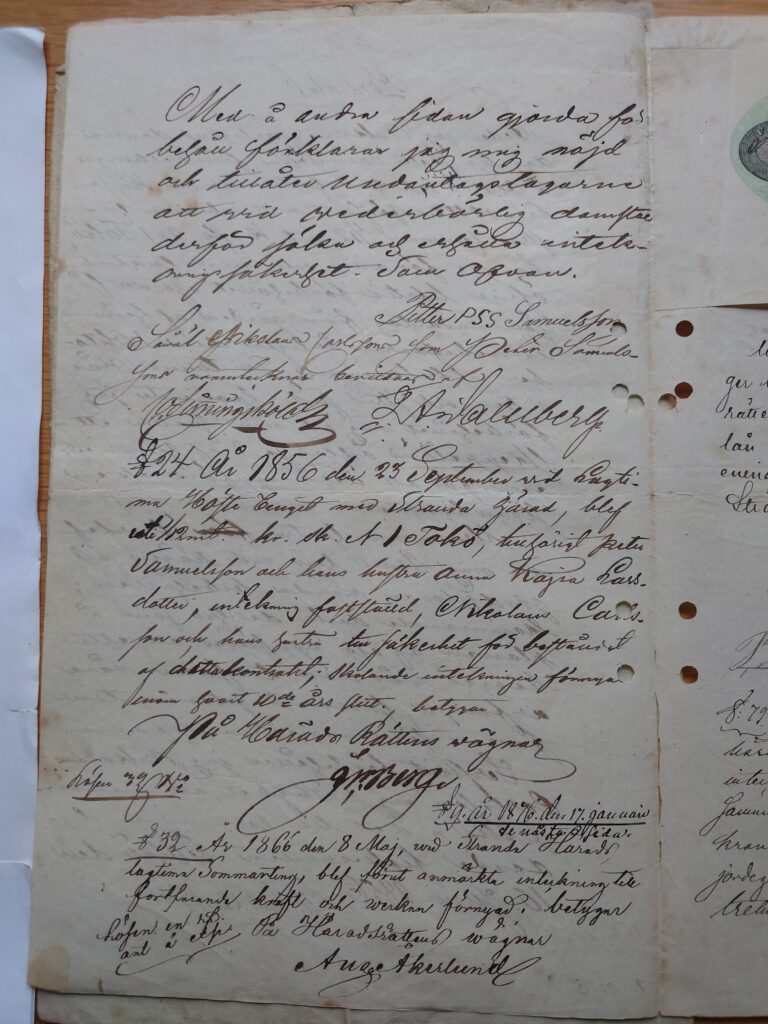 Med å andra sidan gjorda för
behåll förklarar jag mig nöjd
och tillåter Undantagstagarne
att vid wederbörlig domstol
derför söka och erhålla inteck-
ningssäkerhet. Som Ofvan.
Petter P S S Samuelsson
Såväl Nikolaus Carlssons som Peter Samuels-
sons namnteckning bevittnas af
§ 24. År 1856 den 23 September vid Lagti-
ma Höste Tinget med Stranda Härad, blef
uti 1/12 mtl kr. sk. N 1 Tokö, tillhörigt Peter
Samuelsson och hans hustru Anna Kajsa Lars-
dotter, inteckning fastställd, Nikolaus Carls-
son och hans hustru till säkerhet för beståndet
af detta kontrakt; skolande inteckningen förnyas
inom hvart 10de års slut, betygar
På Härads Rättens wägnar
Lösen
§ 7. år 1876 den 17. januari
se nästa sida.
§ 32 År 1866 den 8 Maj, wid Stranda Härads
lagtima Sommarting, blef förut anmärkta inteckning till
fortfarande kraft och werkan förnyad; betygar
Lösen en
På Häradsrättens wägnar
Aug Åkerlund
lån
§: 79
inte